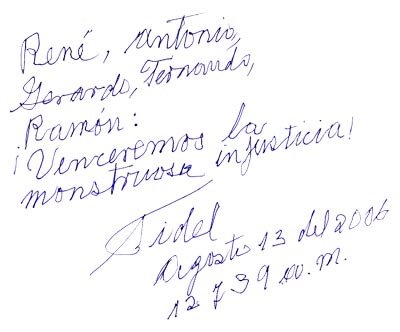 René, Antonio,
Gerardo, Fernando,
Ramón:
¡Venceremos la
monstruosa injusticia!
Fidel
Agosto 13 del 2006
12 y 39 a.m.